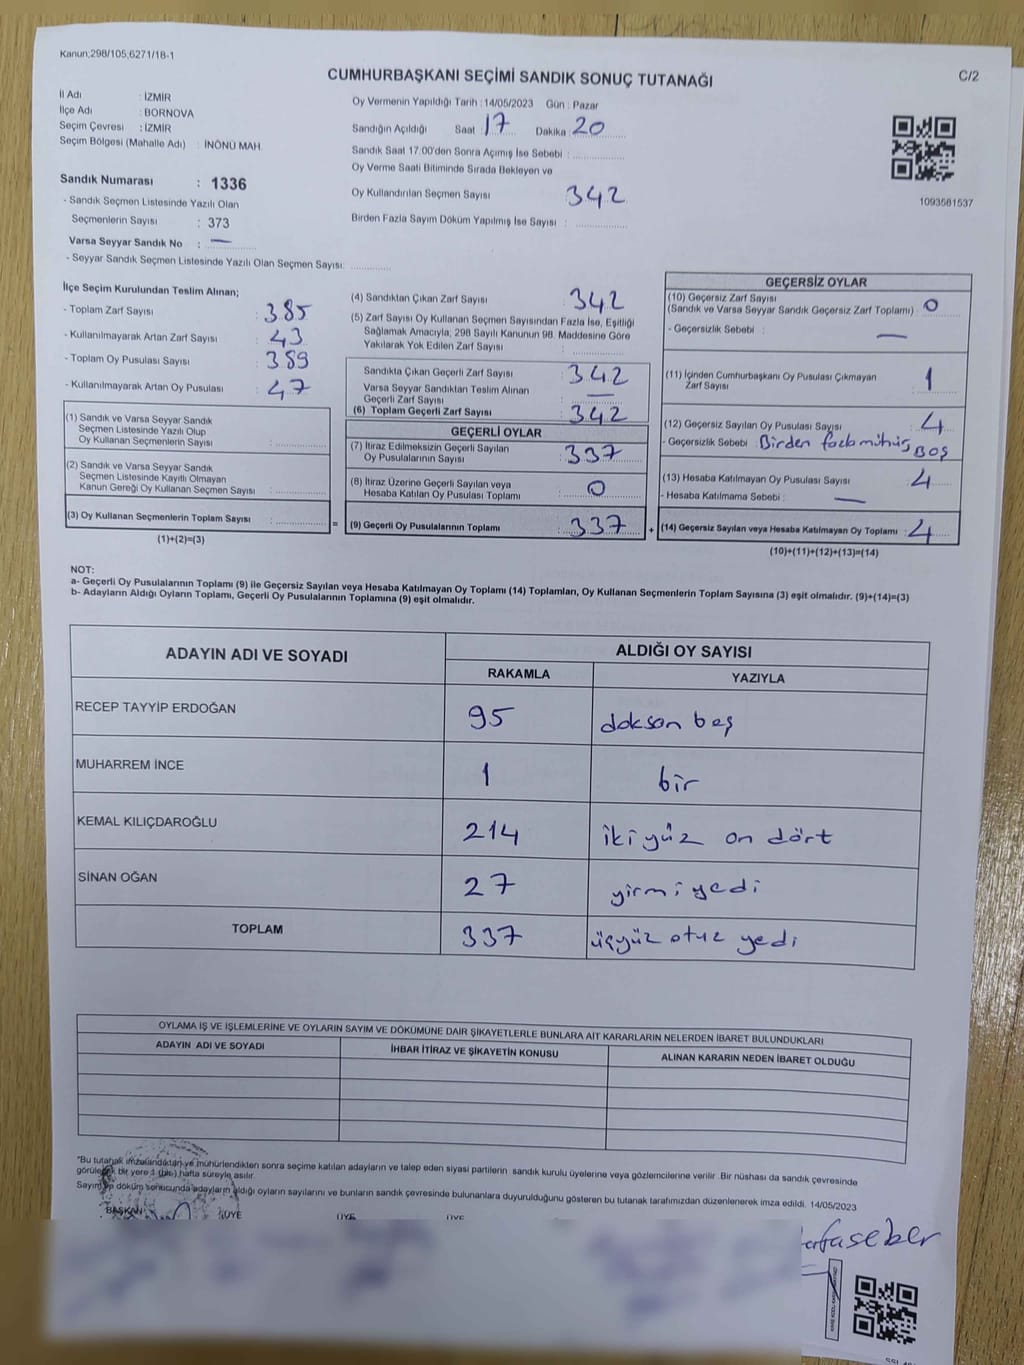 Kanun;298/105;6271/18-1
CUMHURBAŞKANI SEÇİMİ SANDIK SONUÇ TUTANAĞI
C/2
İl Adı : İZMİR
İlçe Adı : BORNOVA
Seçim Çevresi : İZMİR
Seçim Bölgesi (Mahalle Adı) : İNÖNÜ MAH.
Oy Vermenin Yapıldığı Tarih : 14/05/2023 Gün : Pazar
Sandığın Açıldığı Saat : 17 Dakika : 20
Sandık Saat 17:00'den Sonra Açımış İse Sebebi :
Oy Verme Saati Bitiminde Sırada Bekleyen ve
Oy Kullandırılan Seçmen Sayısı 342
Birden Fazla Sayım Döküm Yapılmış İse Sayısı :
1093581537
Sandık Numarası : 1336
- Sandık Seçmen Listesinde Yazılı Olan
Seçmenlerin Sayısı : 373
Varsa Seyyar Sandık No : —
- Seyyar Sandık Seçmen Listesinde Yazılı Olan Seçmen Sayısı:
İlçe Seçim Kurulundan Teslim Alınan;
- Toplam Zarf Sayısı : 385
- Kullanılmayarak Artan Zarf Sayısı : 43
- Toplam Oy Pusulası Sayısı : 389
- Kullanılmayarak Artan Oy Pusulası : 47
(1) Sandık ve Varsa Seyyar Sandık
Seçmen Listesinde Yazılı Olup
Oy Kullanan Seçmenlerin Sayısı :
(2) Sandık ve Varsa Seyyar Sandık
Seçmen Listesinde Kayıtlı Olmayan
Kanun Gereği Oy Kullanan Seçmen Sayısı :
(3) Oy Kullanan Seçmenlerin Toplam Sayısı :
(1)+(2)=(3)
=
(4) Sandıktan Çıkan Zarf Sayısı : 342
(5) Zarf Sayısı Oy Kullanan Seçmen Sayısından Fazla İse, Eşitliği
Sağlamak Amacıyla, 298 Sayılı Kanunun 98. Maddesine Göre
Yakılarak Yok Edilen Zarf Sayısı :
Sandıkta Çıkan Geçerli Zarf Sayısı : 342
Varsa Seyyar Sandıktan Teslim Alınan
Geçerli Zarf Sayısı : —
(6) Toplam Geçerli Zarf Sayısı : 342
GEÇERLİ OYLAR
(7) İtiraz Edilmeksizin Geçerli Sayılan
Oy Pusulalarının Sayısı : 337
(8) İtiraz Üzerine Geçerli Sayılan veya
Hesaba Katılan Oy Pusulası Toplamı : 0
(9) Geçerli Oy Pusulalarının Toplamı : 337
+
GEÇERSİZ OYLAR
(10) Geçersiz Zarf Sayısı
(Sandık ve Varsa Seyyar Sandık Geçersiz Zarf Toplamı) : 0
- Geçersizlik Sebebi : —
(11) İçinden Cumhurbaşkanı Oy Pusulası Çıkmayan
Zarf Sayısı : 1
(12) Geçersiz Sayılan Oy Pusulası Sayısı : 4
- Geçersizlik Sebebi : Birden fazla mühüş BOŞ
(13) Hesaba Katılmayan Oy Pusulası Sayısı : 4
- Hesaba Katılmama Sebebi : —
(14) Geçersiz Sayılan veya Hesaba Katılmayan Oy Toplamı : 4
(10)+(11)+(12)+(13)=(14)
NOT:
a- Geçerli Oy Pusulalarının Toplamı (9) ile Geçersiz Sayılan veya Hesaba Katılmayan Oy Toplamı (14) Toplamları, Oy Kullanan Seçmenlerin Toplam Sayısına (3) eşit olmalıdır. (9)+(14)=(3)
b- Adayların Aldığı Oyların Toplamı, Geçerli Oy Pusulalarının Toplamına (9) eşit olmalıdır.
ADAYIN ADI VE SOYADI
ALDIĞI OY SAYISI
RAKAMLA YAZIYLA
RECEP TAYYİP ERDOĞAN 95 doksan beş
MUHARREM İNCE 1 bir
KEMAL KILIÇDAROĞLU 214 ikiyüz on dört
SİNAN OĞAN 27 yirmi yedi
TOPLAM 337 üçyüz otuz yedi
OYLAMA İŞ VE İŞLEMLERİNE VE OYLARIN SAYIM VE DÖKÜMÜNE DAİR ŞİKAYETLERLE BUNLARA AİT KARARLARIN NELERDEN İBARET BULUNDUKLARI
ADAYIN ADI VE SOYADI İHBAR İTİRAZ VE ŞİKAYETİN KONUSU ALINAN KARARIN NEDEN İBARET OLDUĞU
"Bu tutanak imzalandıktan ve mühürlendikten sonra seçime katılan adayların ve talep eden siyasi partilerin sandık kurulu üyelerine veya gözlemcilerine verilir. Bir nüshası da sandık çevresinde
görülecek bir yere 1 (bir) hafta süreyle asılır.
Sayım ve döküm sonucunda adayların aldığı oyların sayılarını ve bunların sandık çevresinde bulunanlara duyurulduğunu gösteren bu tutanak tarafımızdan düzenlenerek imza edildi. 14/05/2023
BAŞKAN ÜYE ÜYE ÜYE